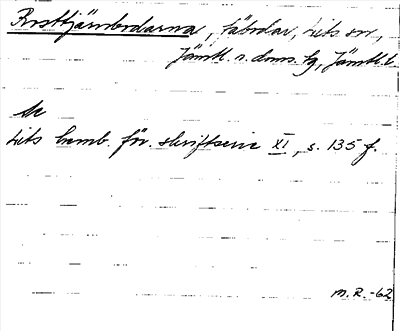 Rosttjärnbodarna, fäbodar, Lits sn,
Jämtl. n. doms. tg, Jämtl. l
Lits hemb. för. skriftserie XI, s. 135 f.
M.R. -62